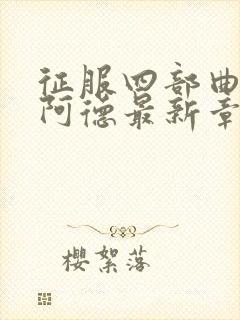 征服四部曲
阿德最新章
樱絮落